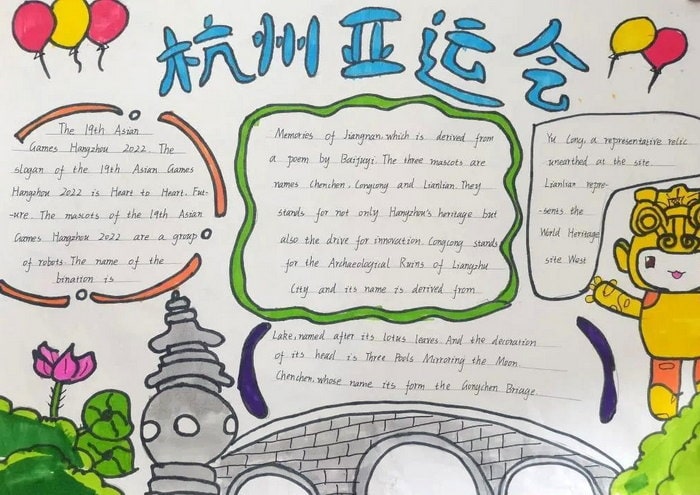 杭州亚运会
The 19th Asian
Games Hangzhou 2022. The
slogan of the 19th Asian Games
Hangzhou 2022 is Heart to Heart, Fut-
-ure. The mascots of the 19th Asian
Games Hangzhou 2022 are a group
of robots. The name of the
bination is
Memories of Jiangnan. which is derived from
a poem by Baijuyi. The three mascots are
names Chenchen. Congcong and Lianlian. They
stands for not only Hangzhou's heritage but
also the drive for innovation. Congcong stands
for the Archaeologial Ruins of Liangzhu
City and its name is derived from
Yu Cong, a representative relic
unearthed at the site
Lianlian repre-
-sents the
World Heritage
site West
Lake, named after its lotus leaves. And the decoration
of its head is Three Pools Mirroring the Moon
Chenchen, whose name its form the Gongchen Briage.